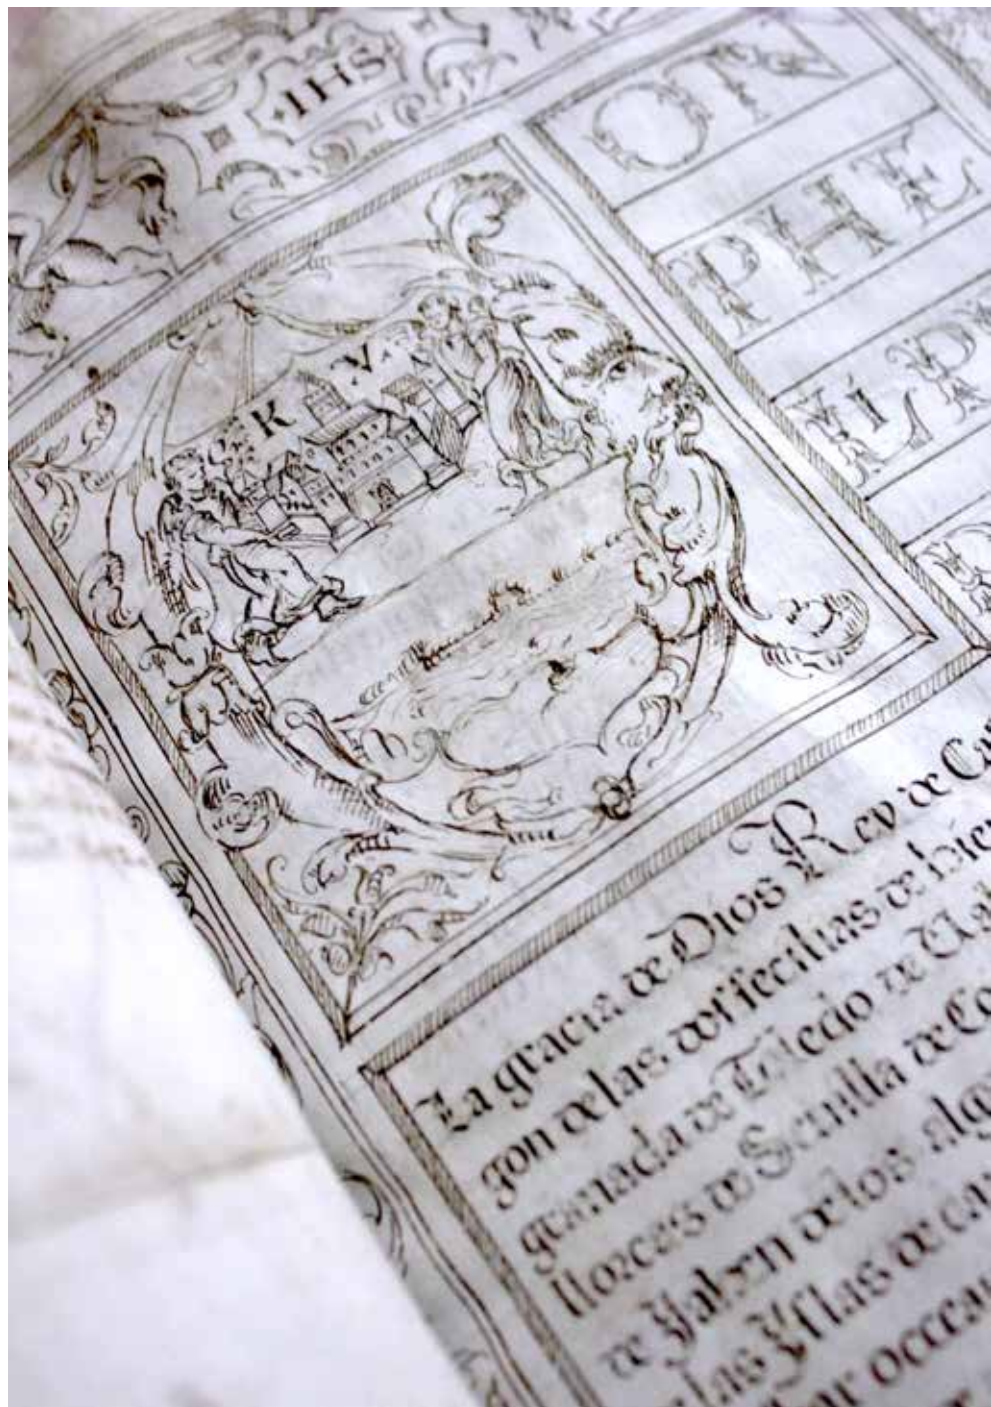 IHS
ON
PHE
LIPP
K V
La gracia de Dios Rey de Ca
gon de las dos secilias de hier
granada de Toledo de Val
llorcas de Seuilla de Co
de Jahen de los alg
las Yslas de cana
mar occea